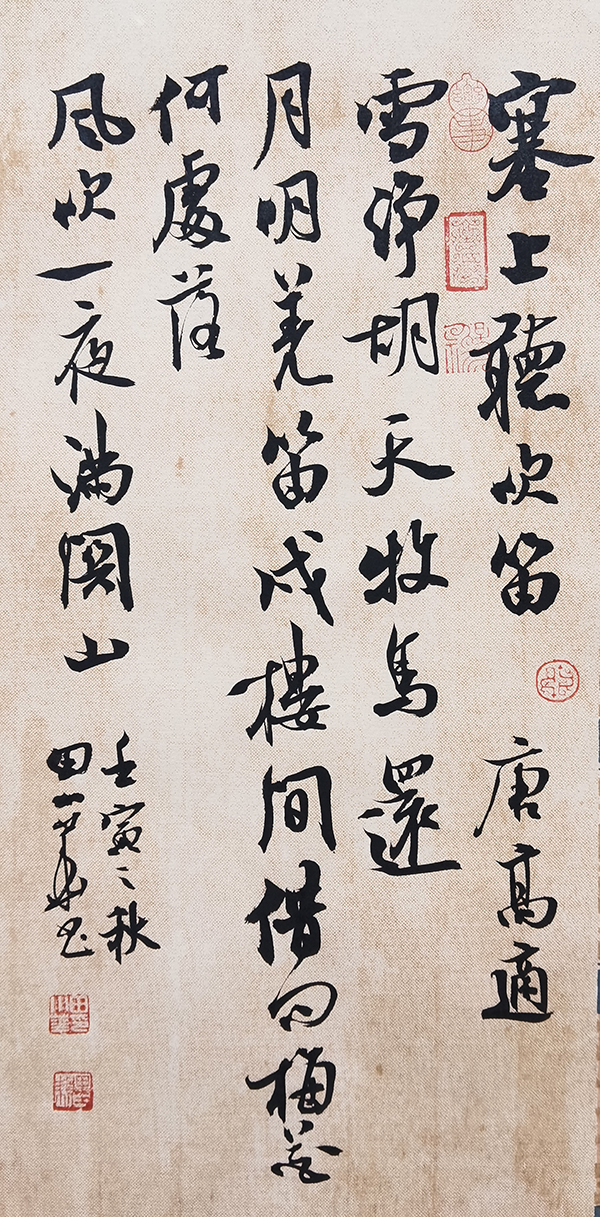 塞上聽吹笛 唐高適
雪淨胡天牧馬還
月明羌笛戍樓間借问梅花
何處落
風吹一夜滿関山
壬寅之秋
田山华书